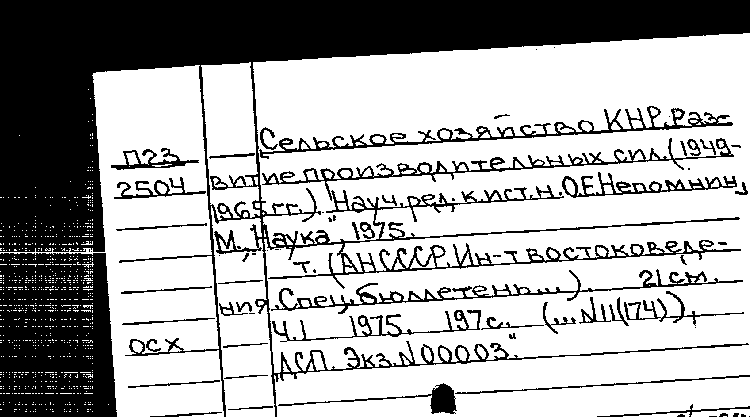 Сельское хозяйство КНР. Раз-
П23
2504 витие производительных сил. (1949-
1965 гг.). Науч. ред. к.ист.н. О.Е. Непомнин,
М., "Наука", 1975.
т. (АН СССР. Ин-т востоковеде-
ния. Спец. бюллетень...). 21 см.
Ч.1 1975. 197 с. (...N 11(174)),
ОСХ
"ДСП. Экз. N 00003."